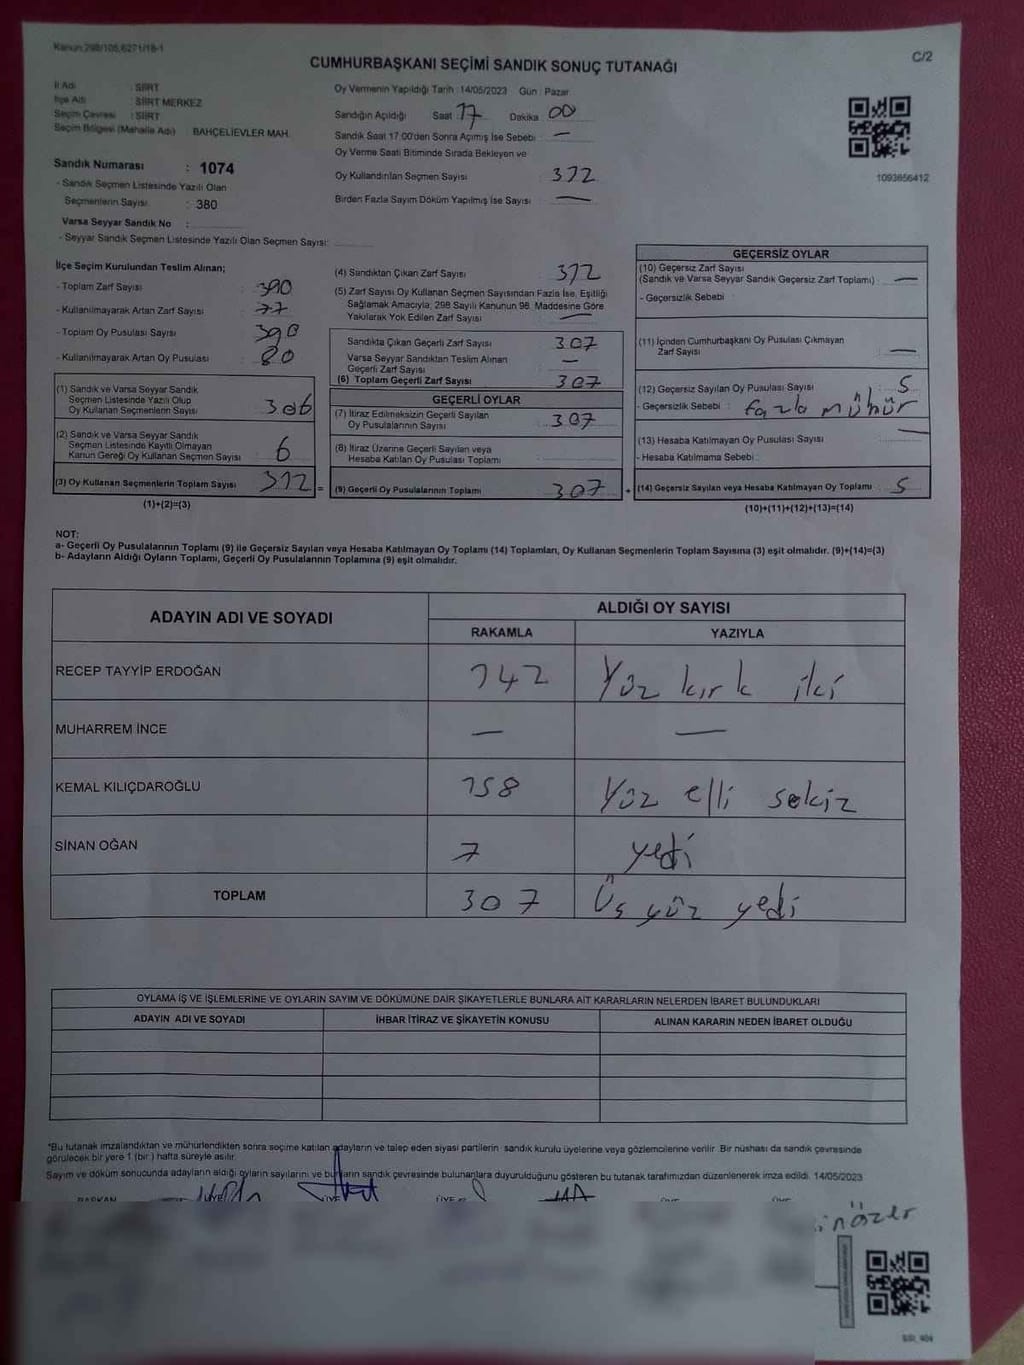 Kanun:298/105,6271/18-1
C/2
CUMHURBAŞKANI SEÇİMİ SANDIK SONUÇ TUTANAĞI
İl Adı : SİİRT
İlçe Adı : SİİRT MERKEZ
Seçim Çevresi : SİİRT
Seçim Bölgesi (Mahalle Adı) BAHÇELİEVLER MAH.
Sandık Numarası : 1074
- Sandık Seçmen Listesinde Yazılı Olan
Seçmenlerin Sayısı : 380
Varsa Seyyar Sandık No :
- Seyyar Sandık Seçmen Listesinde Yazılı Olan Seçmen Sayısı:
Oy Vermenin Yapıldığı Tarih : 14/05/2023 Gün : Pazar
Sandığın Açıldığı Saat : 17 Dakika : 00
Sandık Saat 17:00'den Sonra Açımış İse Sebebi : —
Oy Verme Saati Bitiminde Sırada Bekleyen ve
Oy Kullandırılan Seçmen Sayısı : 312
Birden Fazla Sayım Döküm Yapılmış İse Sayısı : —
1093656412
İlçe Seçim Kurulundan Teslim Alınan;
- Toplam Zarf Sayısı : 390
- Kullanılmayarak Artan Zarf Sayısı : 77
- Toplam Oy Pusulası Sayısı : 390
- Kullanılmayarak Artan Oy Pusulası : 80
(1) Sandık ve Varsa Seyyar Sandık
Seçmen Listesinde Yazılı Olup
Oy Kullanan Seçmenlerin Sayısı : 306
(2) Sandık ve Varsa Seyyar Sandık
Seçmen Listesinde Kayıtlı Olmayan
Kanun Gereği Oy Kullanan Seçmen Sayısı : 6
(3) Oy Kullanan Seçmenlerin Toplam Sayısı : 312 =
(1)+(2)=(3)
(4) Sandıktan Çıkan Zarf Sayısı : 312
(5) Zarf Sayısı Oy Kullanan Seçmen Sayısından Fazla İse, Eşitliği
Sağlamak Amacıyla; 298 Sayılı Kanunun 98. Maddesine Göre
Yakılarak Yok Edilen Zarf Sayısı : —
Sandıkta Çıkan Geçerli Zarf Sayısı : 307
Varsa Seyyar Sandıktan Teslim Alınan
Geçerli Zarf Sayısı : —
(6) Toplam Geçerli Zarf Sayısı : 307
GEÇERLİ OYLAR
(7) İtiraz Edilmeksizin Geçerli Sayılan
Oy Pusulalarının Sayısı : 307
(8) İtiraz Üzerine Geçerli Sayılan veya
Hesaba Katılan Oy Pusulası Toplamı :
(9) Geçerli Oy Pusulalarının Toplamı : 307 +
GEÇERSİZ OYLAR
(10) Geçersiz Zarf Sayısı
(Sandık ve Varsa Seyyar Sandık Geçersiz Zarf Toplamı) : —
- Geçersizlik Sebebi :
(11) İçinden Cumhurbaşkanı Oy Pusulası Çıkmayan
Zarf Sayısı : —
(12) Geçersiz Sayılan Oy Pusulası Sayısı : 5
- Geçersizlik Sebebi : fazla mühür
(13) Hesaba Katılmayan Oy Pusulası Sayısı : —
- Hesaba Katılmama Sebebi :
(14) Geçersiz Sayılan veya Hesaba Katılmayan Oy Toplamı : 5
(10)+(11)+(12)+(13)=(14)
NOT:
a- Geçerli Oy Pusulalarının Toplamı (9) ile Geçersiz Sayılan veya Hesaba Katılmayan Oy Toplamı (14) Toplamları, Oy Kullanan Seçmenlerin Toplam Sayısına (3) eşit olmalıdır. (9)+(14)=(3)
b- Adayların Aldığı Oyların Toplamı, Geçerli Oy Pusulalarının Toplamına (9) eşit olmalıdır.
ADAYIN ADI VE SOYADI ALDIĞI OY SAYISI
RAKAMLA YAZIYLA
RECEP TAYYİP ERDOĞAN 142 Yüz kırk iki
MUHARREM İNCE — —
KEMAL KILIÇDAROĞLU 158 Yüz elli sekiz
SİNAN OĞAN 7 yedi
TOPLAM 307 Üç yüz yedi
OYLAMA İŞ VE İŞLEMLERİNE VE OYLARIN SAYIM VE DÖKÜMÜNE DAİR ŞİKAYETLERLE BUNLARA AİT KARARLARIN NELERDEN İBARET BULUNDUKLARI
ADAYIN ADI VE SOYADI İHBAR İTİRAZ VE ŞİKAYETİN KONUSU ALINAN KARARIN NEDEN İBARET OLDUĞU
*Bu tutanak imzalandıktan ve mühürlendikten sonra seçime katılan adayların ve talep eden siyasi partilerin sandık kurulu üyelerine veya gözlemcilerine verilir. Bir nüshası da sandık çevresinde
görülecek bir yere 1 (bir ) hafta süreyle asılır.
Sayım ve döküm sonucunda adayların aldığı oyların sayılarını ve bunların sandık çevresinde bulunanlara duyurulduğunu gösteren bu tutanak tarafımızdan düzenlenerek imza edildi. 14/05/2023
BAŞKAN ÜYE ÜYE ÜYE